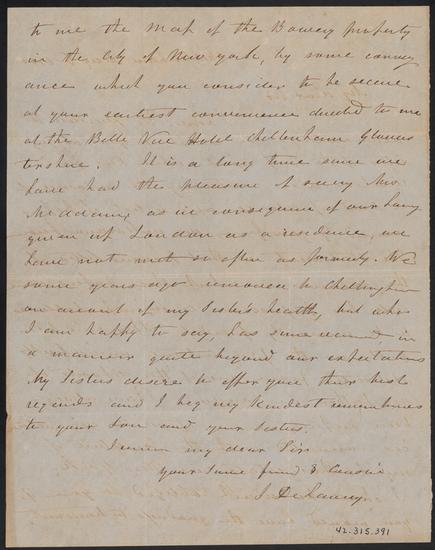 to me the Map of the Bowery property
in the City of New York, by some convey
ance which you consider to be secure
at your earliest convenience directed to me
at the Belle Vue Hotel Cheltenham Glouces
tershire. It is a long time since we
have had the pleasure of seeing Mrs
McAdam, as in consequence of our having
given up London as a residence, we
have not met so often as formerly. We
some years ago removed to Cheltenham
on account of my Sister's health, but who
I am happy to say, has since recovered in
a manner quite beyond our expectations
My Sisters desire to offer you their best
regards and I beg my kindest remembrances
to your Son and your Sisters.
I remain my dear Sir
your sincere friend & Cousin
J DeLancey
42.315.391